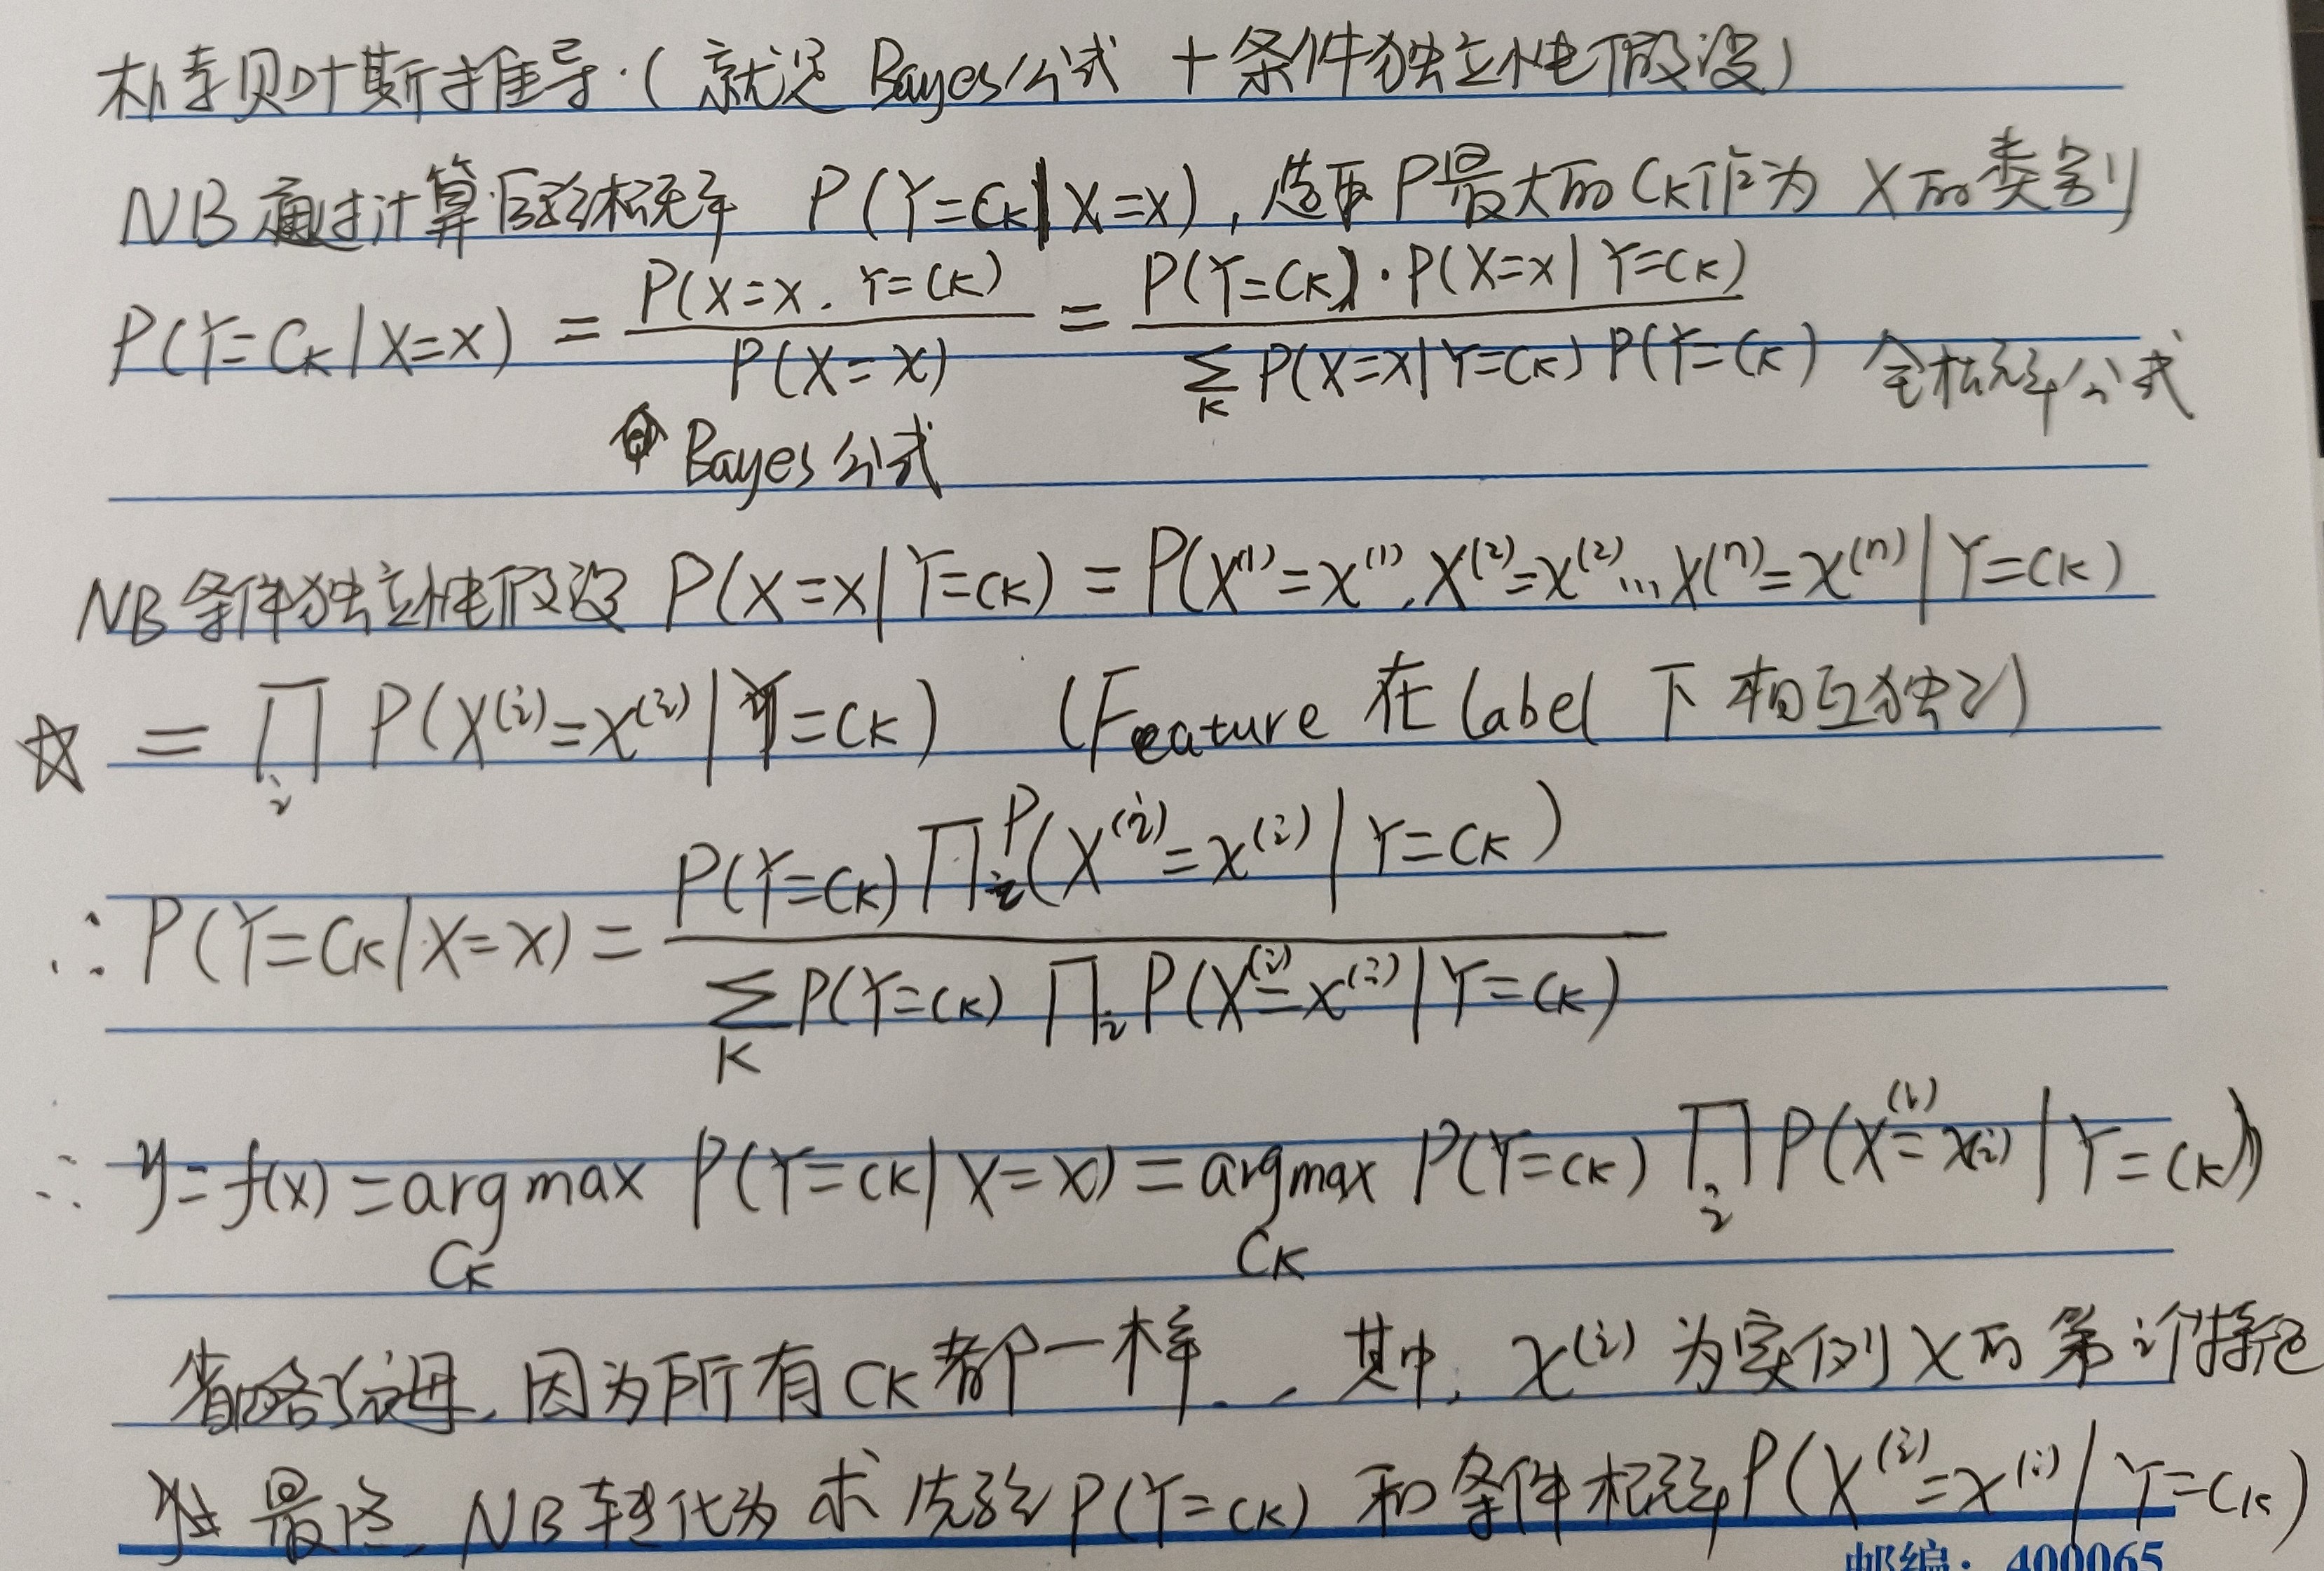 朴素贝叶斯推导.(就是 Bayes公式 + 条件独立性假设)
NB 通过计算后验概率 P(Y=CK|X=x), 选取P最大的CK作为 X的类别
P(Y=CK|X=x) = P(X=x, Y=CK) / P(X=x) = P(Y=CK)·P(X=x|Y=CK) / ∑K P(X=x|Y=CK)P(Y=CK) 全概率公式
Bayes公式
NB 条件独立性假设 P(X=x|Y=CK) = P(X^(1)=x^(1), X^(2)=x^(2)... X^(n)=x^(n)|Y=CK)
☆ = ∏i P(X^(i)=x^(i)|Y=CK) (Feature 在 label 下 相互独立)
∴ P(Y=CK|X=x) = P(Y=CK)∏i P(X^(i)=x^(i)|Y=CK) / ∑K P(Y=CK) ∏i P(X^(i)=x^(i)|Y=CK)
∴ y=f(x)=argmax CK P(Y=CK|X=x) = argmax CK P(Y=CK) ∏i P(X^(i)=x^(i)|Y=CK))
省略分母, 因为所有CK都一样., 其中, x^(i) 为实例X的第i个特征
最终, NB转化为 求 先验P(Y=CK) 和条件概率P(X^(i)=x^(i)|Y=CK)
邮编: 400065